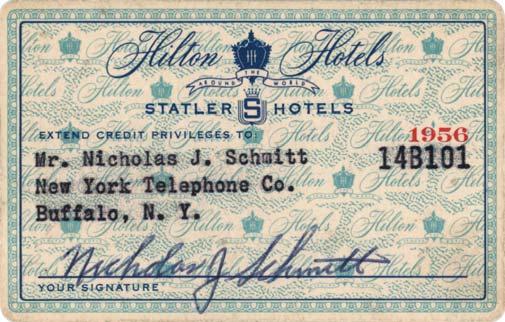 Hilton Hotels
AROUND THE WORLD
STATLER S HOTELS
EXTEND CREDIT PRIVILEGES TO:
1956
Mr. Nicholas J. Schmitt
14B101
New York Telephone Co.
Buffalo, N. Y.
Nicholas J Schmitt
YOUR SIGNATURE